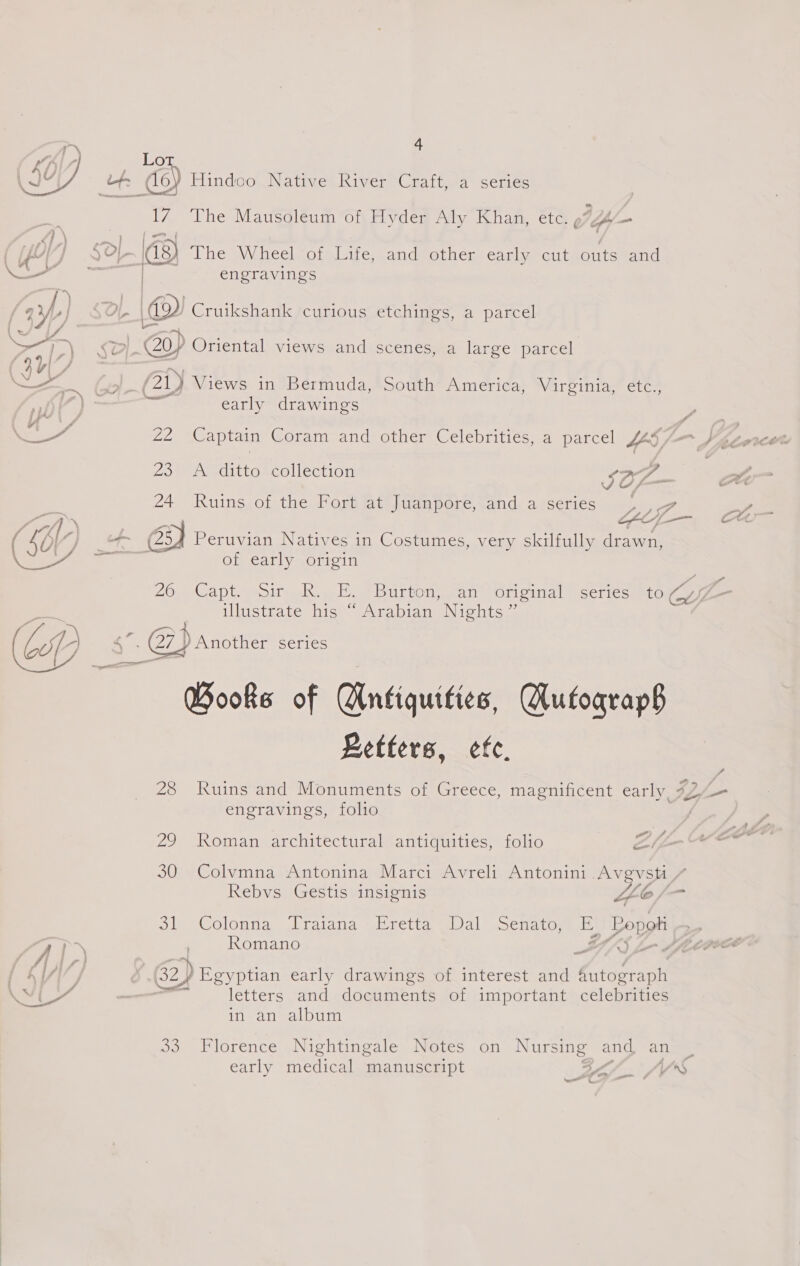 4
Lot
(16) Hindoo Native River Craft, a series
17 The Mausoleum of Hyder Aly Khan, etc.
(18) The Wheel of Life, and other early cut outs and
engravings
(19) Cruikshank curious etchings, a parcel
(20) Oriental views and scenes, a large parcel
(21) Views in Bermuda, South America, Virginia, etc.,
early drawings
22 Captain Coram and other Celebrities, a parcel
23 A ditto collection
24 Ruins of the Fort at Juanpore, and a series
(25) Peruvian Natives in Costumes, very skilfully drawn,
of early origin
26 Capt. Sir R. E. Burton, an original series to
illustrate his “Arabian Nights”
(27) Another series
Books of Antiquities, Autograph
Letters, etc.
28 Ruins and Monuments of Greece, magnificent early
engravings, folio
29 Roman architectural antiquities, folio
30 Colvmna Antonina Marci Avreli Antonini Avgvsti
Rebvs Gestis insignis
31 Colonna Traiana Eretta Dal Senato, E Popoli
Romano
(32) Egyptian early drawings of interest and autograph
letters and documents of important celebrities
in an album
33 Florence Nightingale Notes on Nursing and an
early medical manuscript